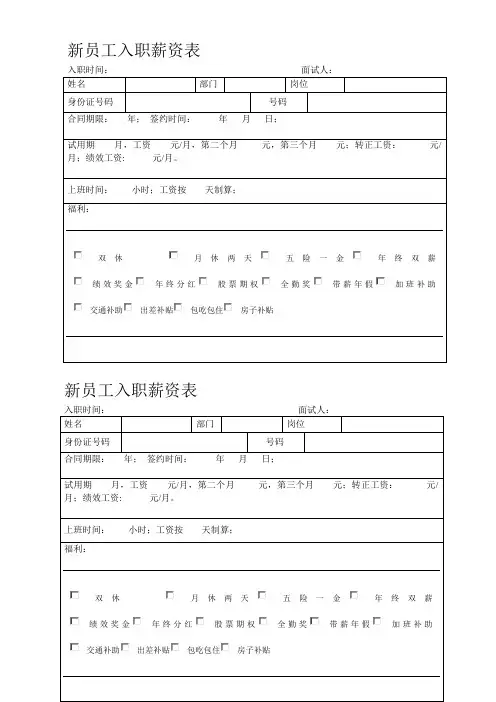 新员工入职薪资表
入职时间： 面试人：
姓名 部门 岗位
身份证号码 号码
合同期限： 年； 签约时间： 年 月 日；
试用期 月，工资 元/月，第二个月 元，第三个月 元；转正工资： 元/
月；绩效工资： 元/月。
上班时间： 小时；工资按 天制算；
福利：
双休 月休两天 五险一金 年终双薪
绩效奖金 年终分红 股票期权 全勤奖 带薪年假 加班补助
交通补助 出差补贴 包吃包住 房子补贴
新员工入职薪资表
入职时间： 面试人：
姓名 部门 岗位
身份证号码 号码
合同期限： 年； 签约时间： 年 月 日；
试用期 月，工资 元/月，第二个月 元，第三个月 元；转正工资： 元/
月；绩效工资： 元/月。
上班时间： 小时；工资按 天制算；
福利：
双休 月休两天 五险一金 年终双薪
绩效奖金 年终分红 股票期权 全勤奖 带薪年假 加班补助
交通补助 出差补贴 包吃包住 房子补贴